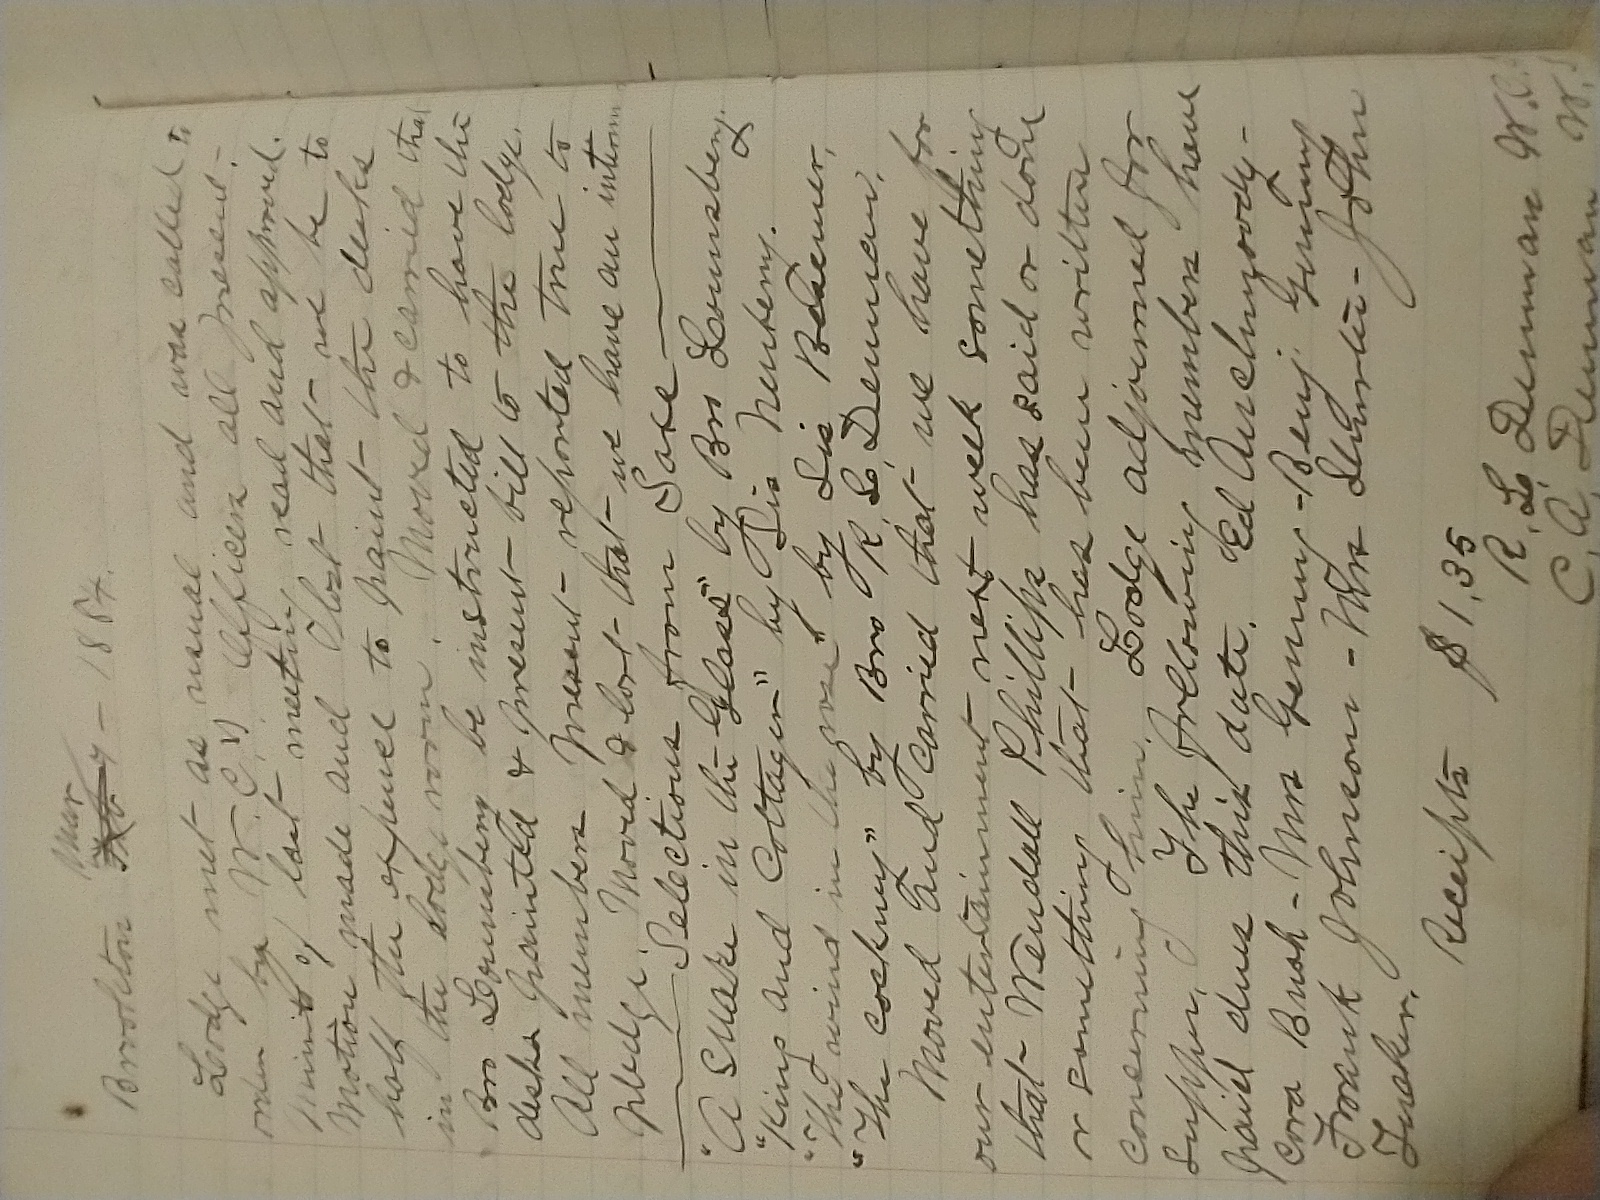 Mar
Brookton Feb 7 - 1884.
Lodge met as usual and was called to
order by W.C.T. Officers all present.
Minits of last meeting read and approved.
Motion made and lost that we be to
half the expence to paint the desks
in the lodge room. Moved & carried that
Bro Lounsbery be instructed to have the
desks painted & present bill to the lodge.
All members present reported true to
pledge. Moved & lost that we have an interm
Selections from Saxe
"A Snake in the Glass" by Bro Lounsbery.
"King and Cottager" by Sis Newbery.
"The wind in the rose" by Sis Besemer,
"The cockney" by Bro R. L. Denman.
Moved and carried that we have for
our entertainment next week something
that Wendall Phillips has said or done
or something that has been written
concerning him. Lodge adjourned for
supper. The following members have
paid dues this date. Ed Auchmoody-
Cora Bush - Mrs Genung - Benj Genung
Frank Johnson - Mrs - John
Tucker.
Receipts $1,35
R. L. Denman W.C.
C. A. Denman W.